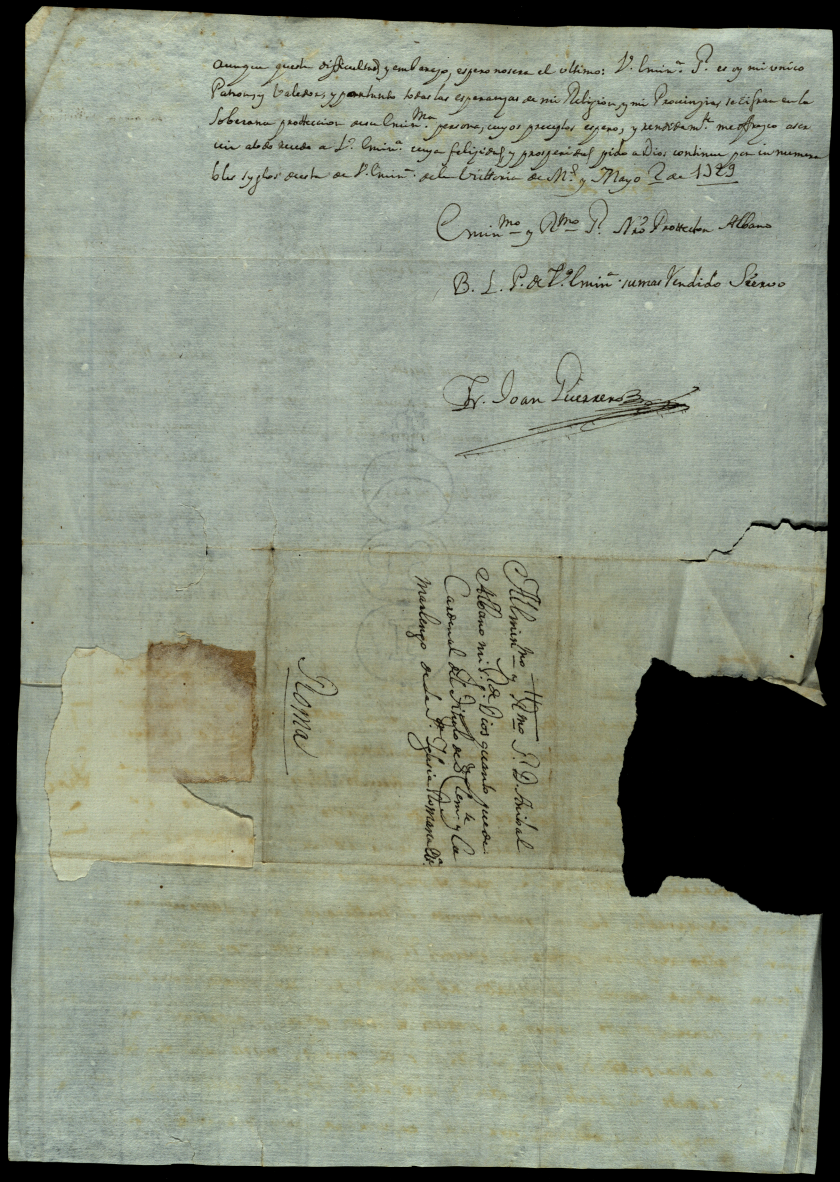 aunque queda difficultad, y embarazo, espero no sera el ultimo: V.ª Emin.ª P.ª es oy mi unico
Patron, y Valedor, y por tanto todas las esperanzas de mi Religion, y mi Provinzia, se cifran en la
Soberana protteccion de su Emin.ma persona, cuyos preceptos espero, y rendidam.te me ofrezco a ser
vir a todo ruedo a V.ª Emin.ª cuya felizidad, y prosperidad pido a Dios continue por innumera
bles syglos de esta de V.ª Emin.ª de la Vittoria de M.d y Mayo 2 de 1729
Emin.mo y R.mo P.e Nro Protector Albano
B. L. P. de V.ª Emin.ª su mas Rendido Siervo
Fr. Joan Guerrero
Al Emin.mo y R.mo S.r D. Anibal
Albano mi S.r q.e Dios guarde puede
Cardenal del Titulo de S. Clem.te y Ca
marlengo de la S.ta Iglesia Romana &.ª
Roma